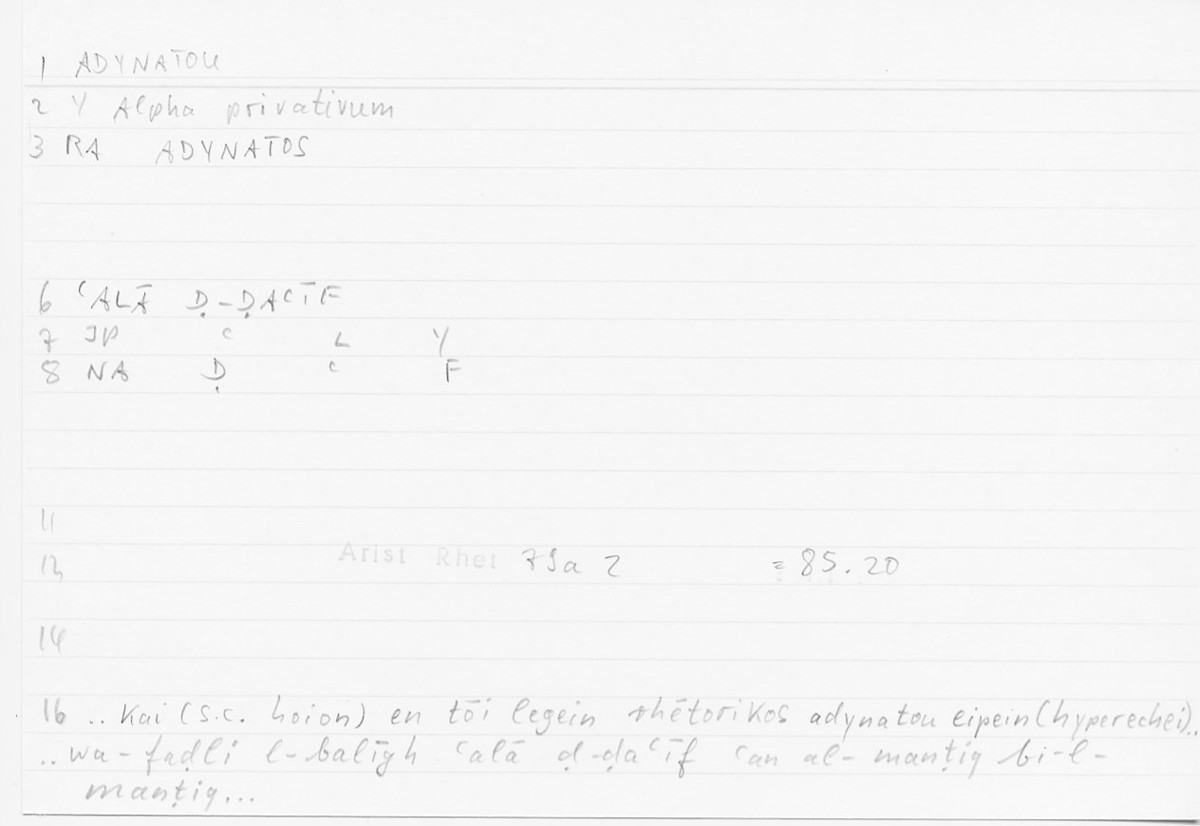 1 ADYNATOU
2 Y Alpha privativum
3 RA ADYNATOS
6 ʿALĀ Ḍ-ḌAʿĪF
7 JP ʿ L Y
8 NA Ḍ ʿ F
11
12 Arist Rhet 79a 2 = 85.20
14
16 .. Kai (s.c. hoion) en tōi legein rhētorikos adynatou eipein (hyperechei)..
.. wa-faḍli l-balīgh ʿalā ḍ-ḍaʿīf ʿan al-manṭiq bi-l-
manṭiq...